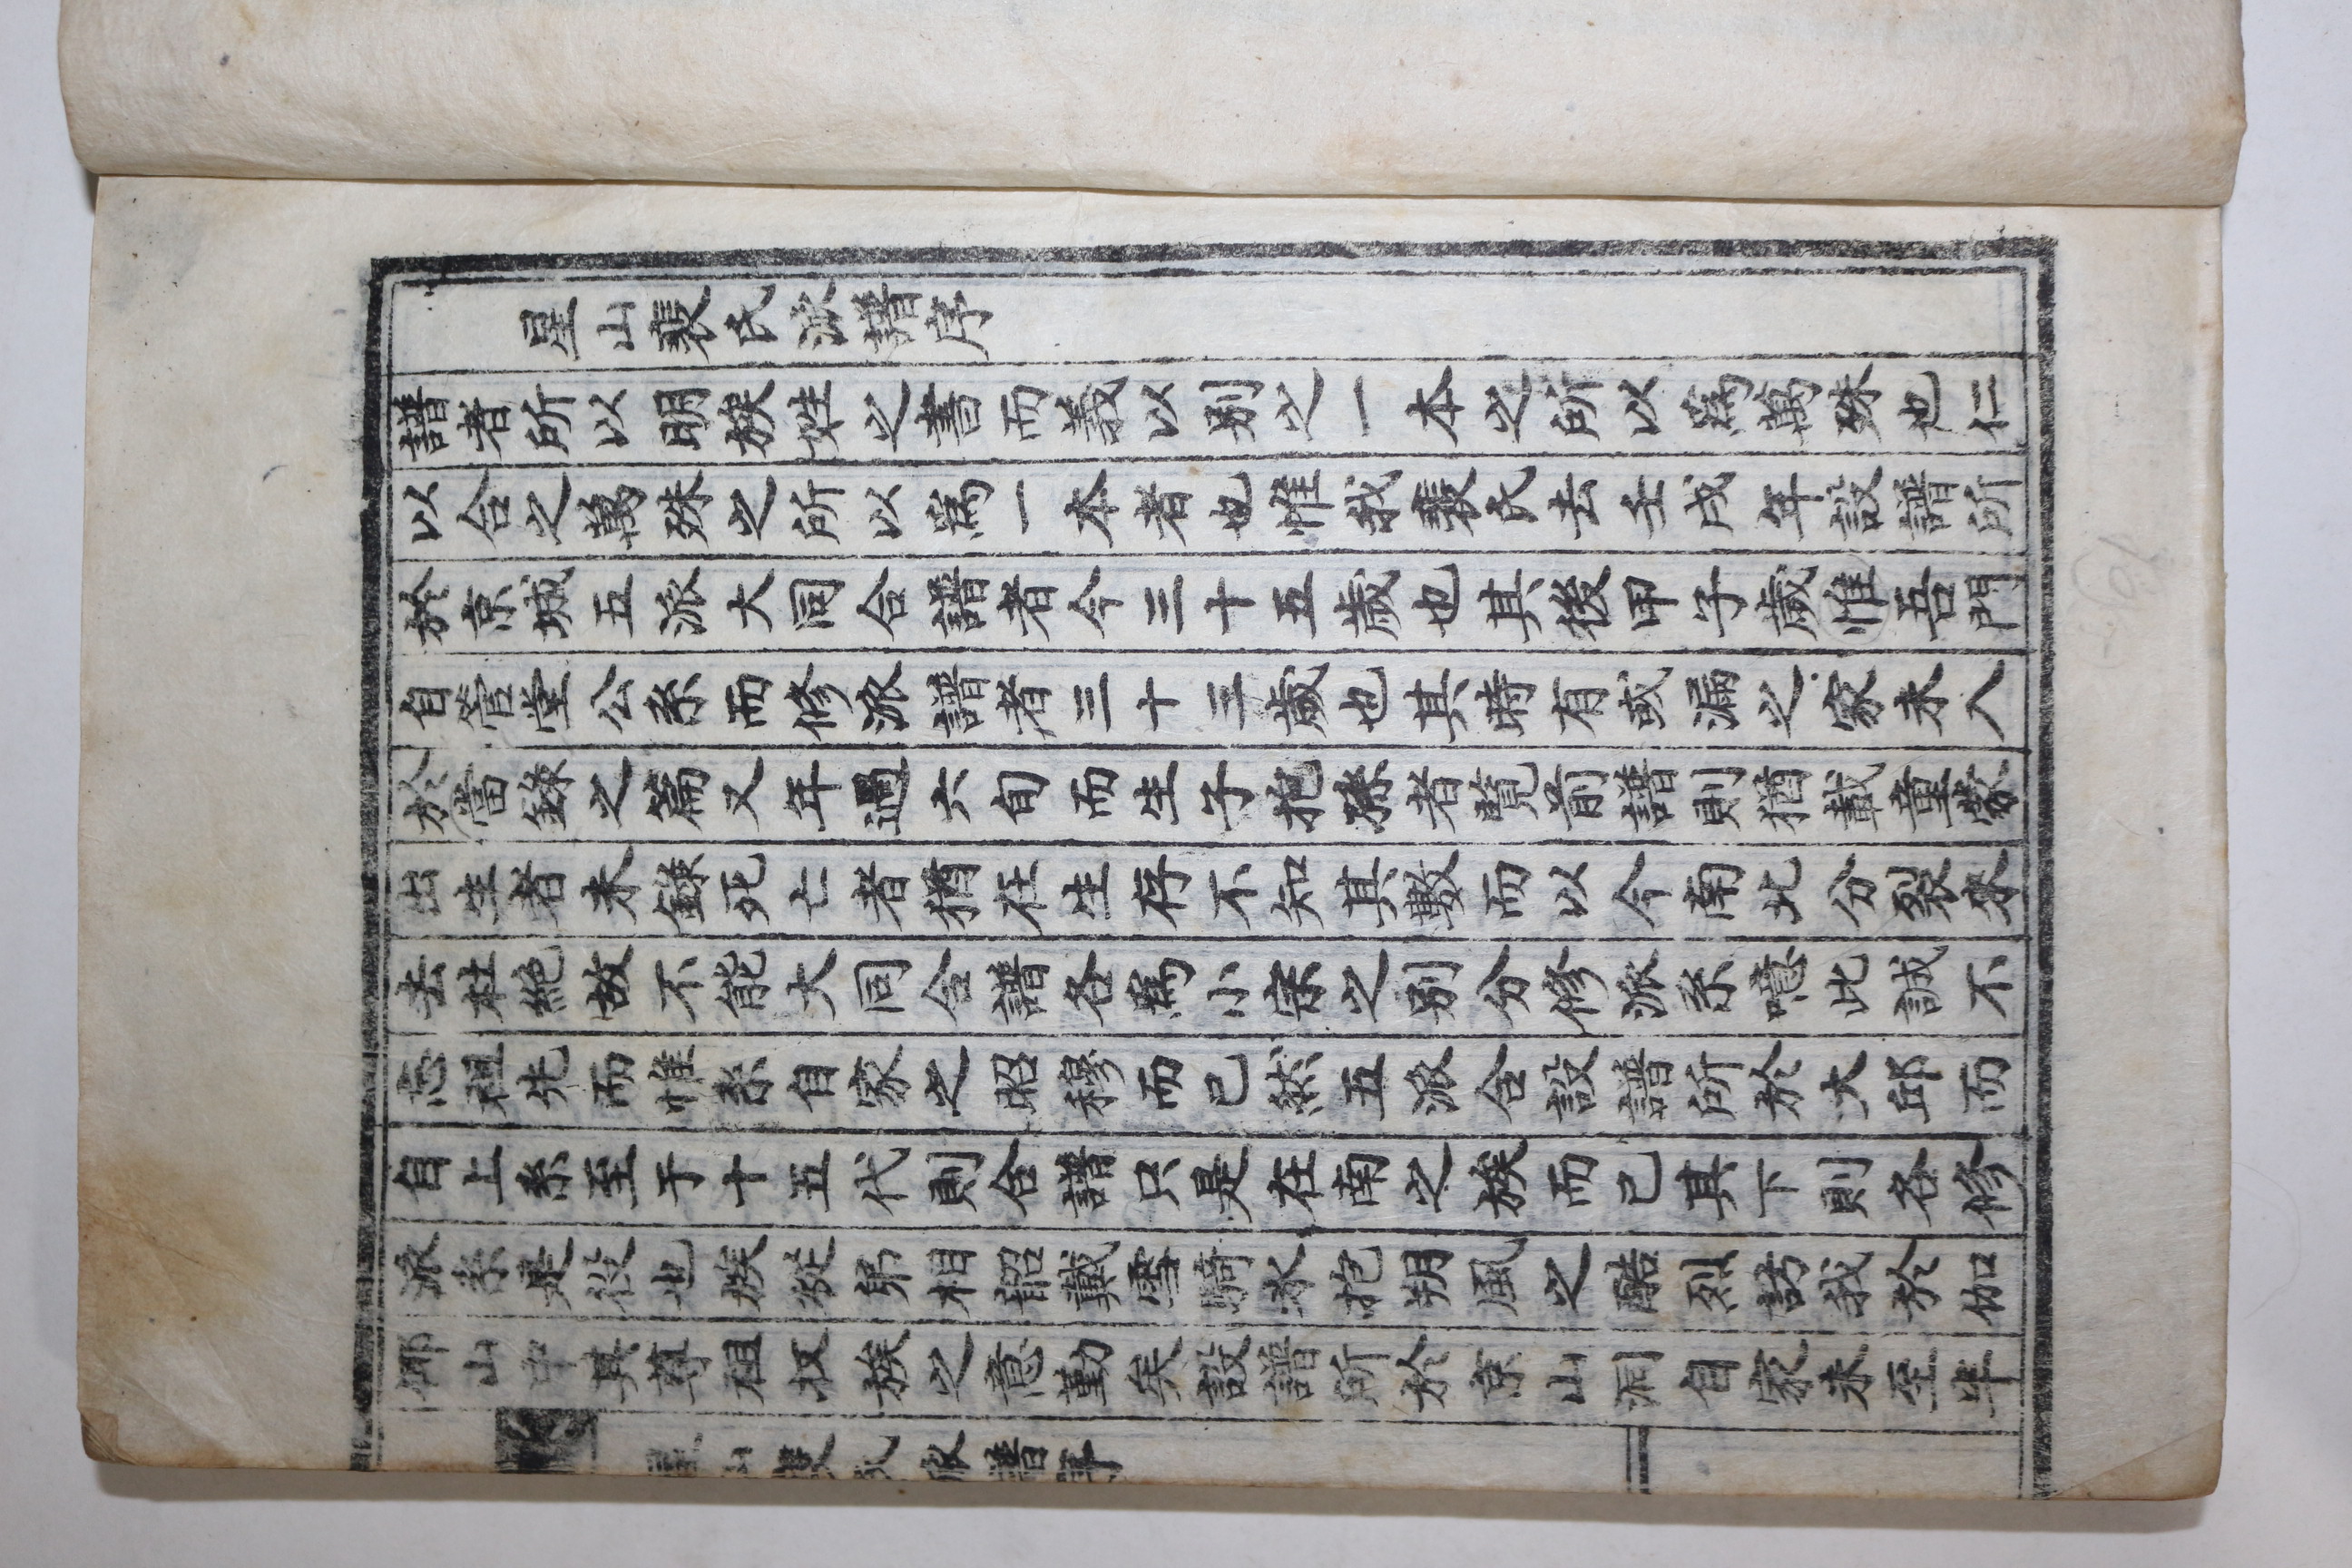 星山裴氏派譜序
譜者所以明族姓之書而義以別之一本之所以爲萬殊也仁
以合之萬殊之所以爲一本者也惟我裴氏去壬戌年設譜所
於京城五派大同合譜者今三十五歲也其後甲子歲惟吾門
自管堂公系而修派譜者三十三歲也其時有或漏之家未入
於當錄之篇又年過六旬而生子抱孫者覽前譜則猶載童蒙
出生者未錄死亡者猶在生存不知其數而以今南北分裂來
去杜絕故不能大同合譜各爲小宗之別分修派系噫此誠不
忘祖先而惟系自家之昭穆而已然五派合設譜所於大邱而
自上系至于十五代則合譜只是在南之族而已其下則各修
派系是役也族從弟相韶戴雪騎氷抱朔風之酷烈訪我於伽
倻山中其尊祖收族之意勤矣設譜所於京山洞自家未至半
星山裴氏派譜序